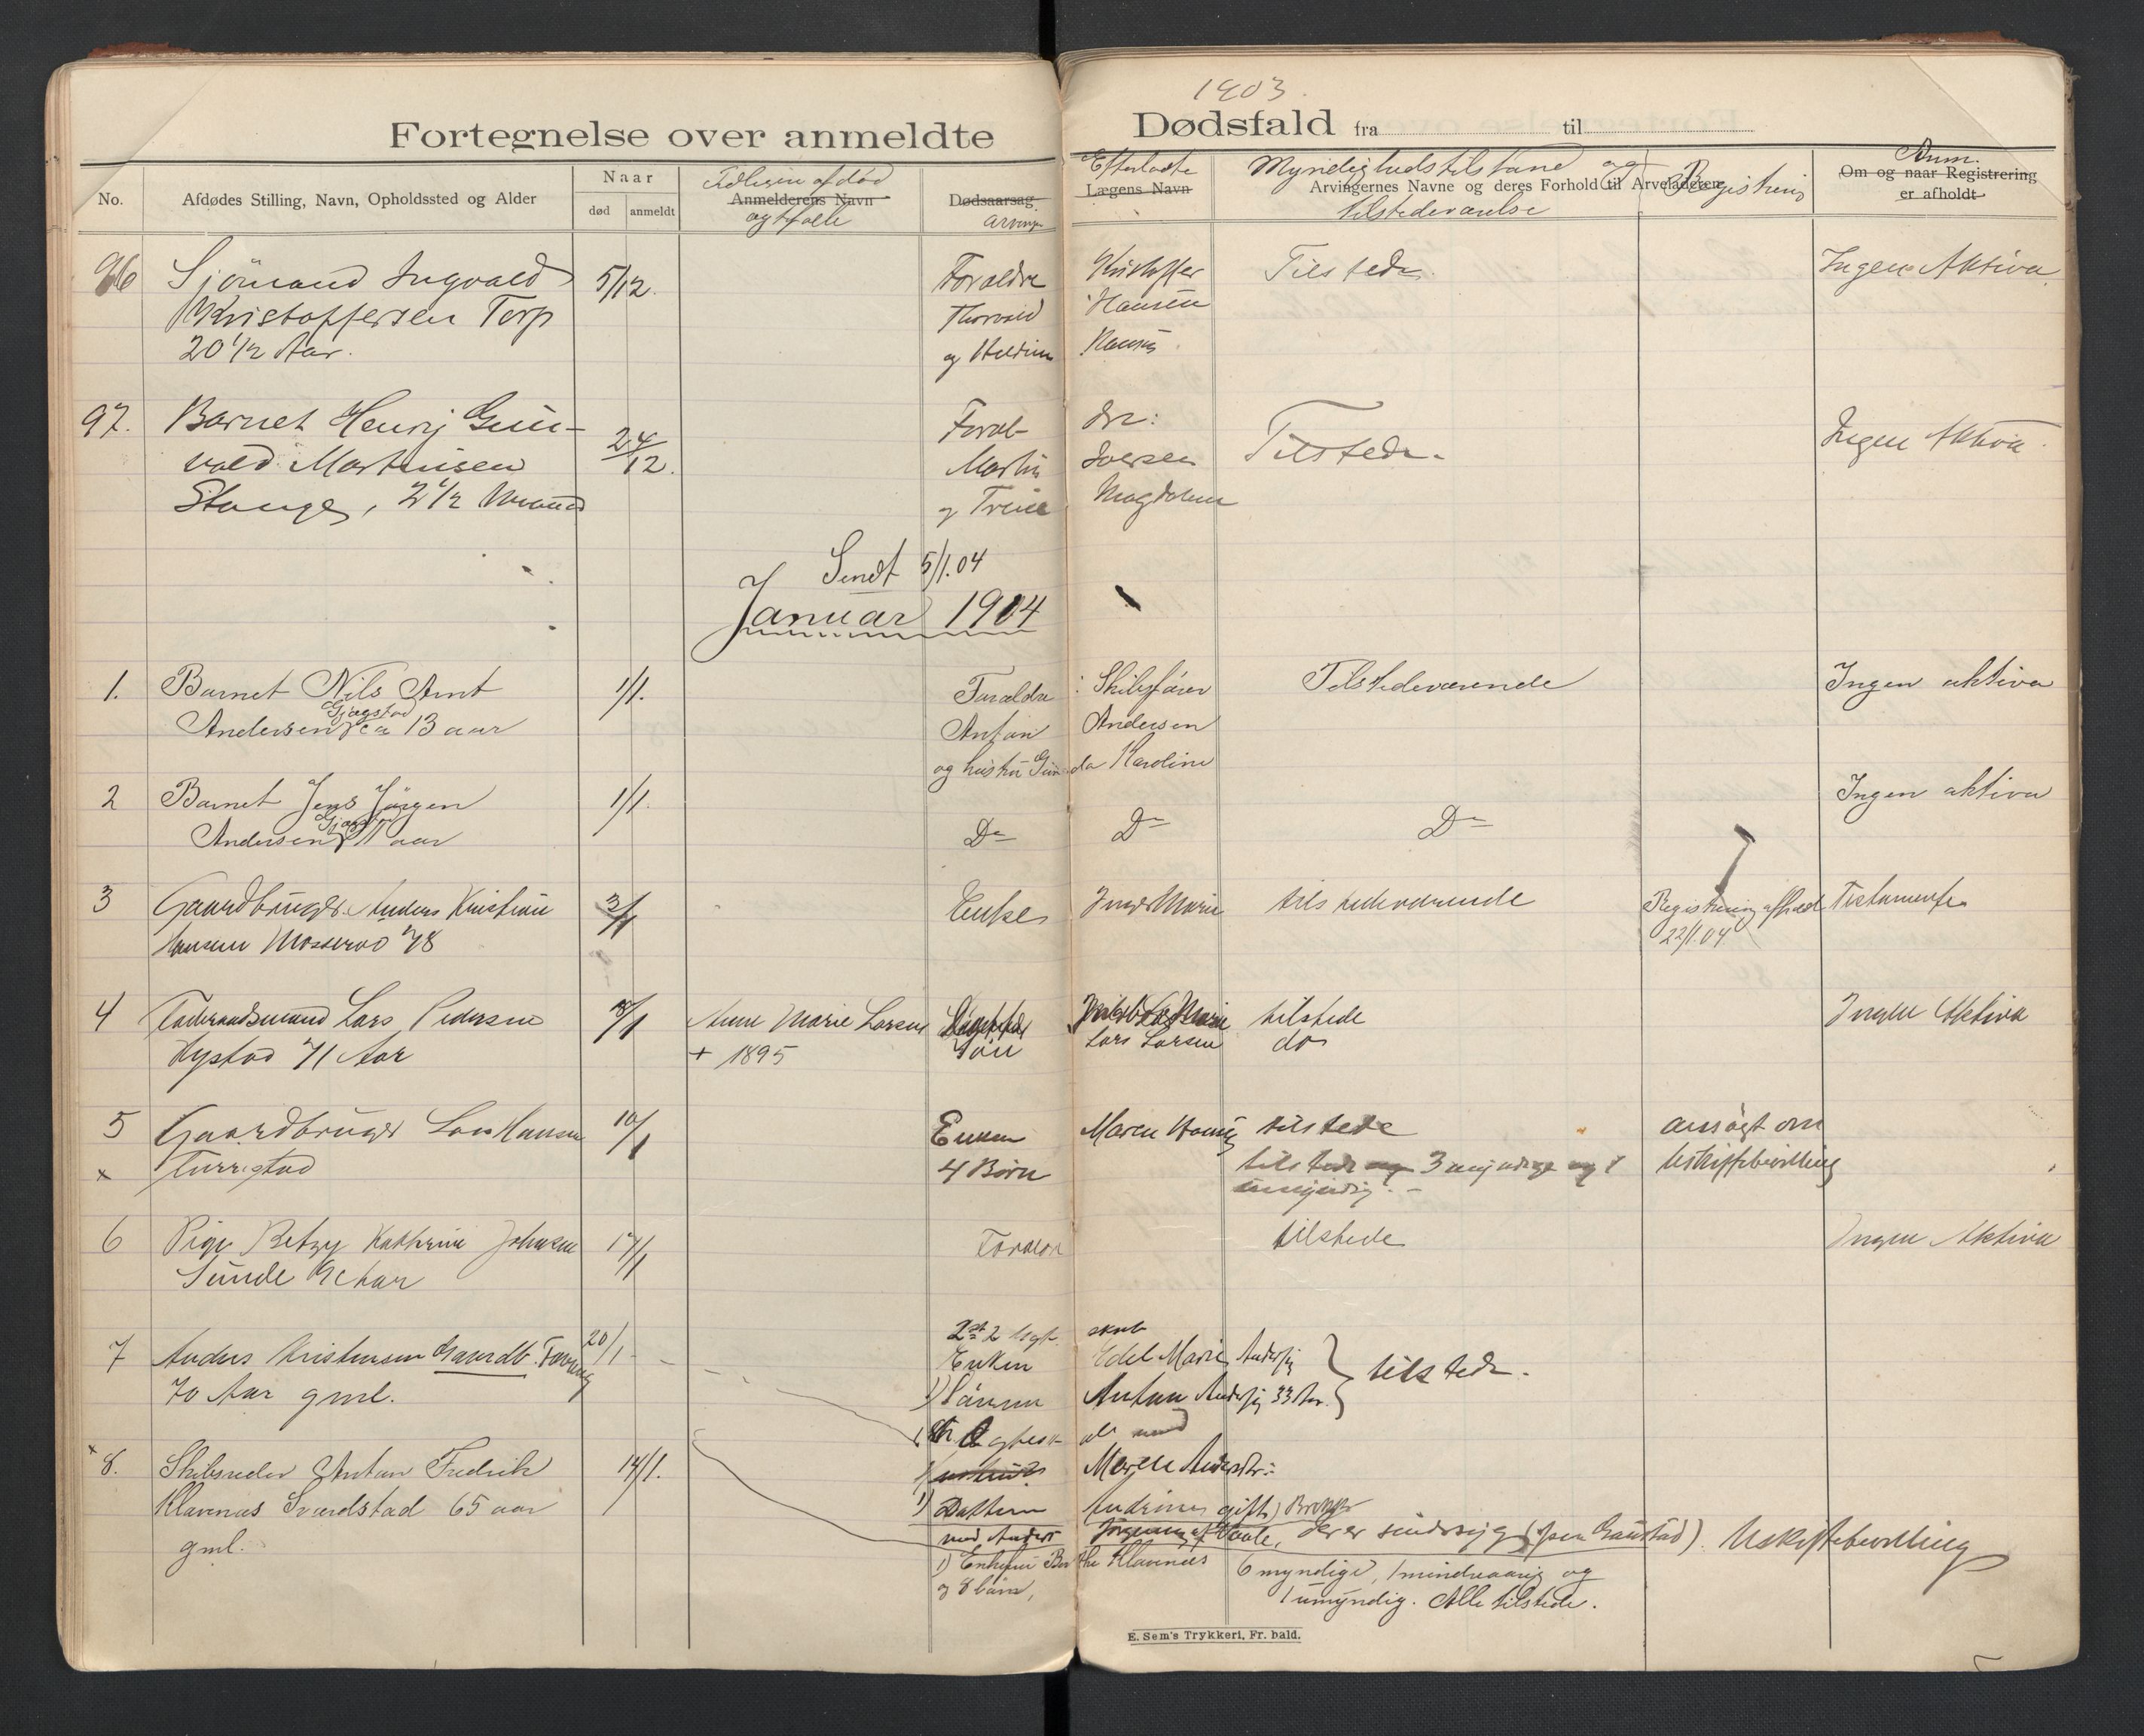 1903.
Fortegnelse over anmeldte Dødsfald fra til
No.
Afdødes Stilling, Navn, Opholdssted og Alder
Naar
død
anmeldt
Tidligere afdød
Anmelderens Navn
ægtefælle
Dødsaarsag
Arvinger
Efterladte
Lægens Navn
Myndighedstilstand og
Arvingernes Navne og deres Forhold til Arveladeren
tilstedeværelse
Registrering
Anm.
Om og naar Registrering
er afholdt
96 Sjömand Ingvald 5/12. Forældre Kristoffer Tilstede. Ingen Aktiva.
Kristoffersen Torp Thorvald Hansen
20 1/2 Aar. og
97. Barnet Henrij Gun- 24/12. Foræl- dre: Tilstede. Ingen Aktiva.
vald Martinsen Martin Iversen
Stange, 2 1/2 Maaned og Trine Magdalene
Sendt 5/1.04
Januar 1904
1. Barnet Nils Arnt 1/1. Forældre : Skibsfører Tilstedeværende Ingen aktiva
Gjøgstad
Andersen ca 13 aar Anton Andersen
og hustru Gunda Karoline
2 Barnet Jens Jørgen 1/1. Ingen aktiva
Andersen 11 aar Do Do Do
3 Gaardbruger Anders Kristian 3/1 Enke Inger Marie tilstedeværende Registrering afholdt Testamente
Hansen Mosserød 78 22/1.04
4 Lars Pedersen 8/1 Anne Marie Larsen tilstede Ingen Aktiva
Nystad 71 Aar + 1895 Søn Lars Larsen do
5 Gaardbruger Lars Hansen 10/1 Enken Maren tilstede ansøgt om
x 4 Børn tilstede og 3 myndige og 1 Uskiftebevilling
umyndig. -
6 Pige Betzy Kathrine Johnsen 17/1 Forældre tilstede Ingen Aktiva
Sunde
2det Ægte- skab
7 Anders Kristensen Gaardb. 20/1 Enken Edel Marie tilstede.
70 Aar gml. 1) Sønnen Anton 33 Aar.
med
x 8. Skibsreder Anton Fredrik 14/1. Maren
Klavenæs Sværdstad 65 aar 1) Datteren Andrine gift
gml. med Anders der er sindssyg (paa Gaustad). Uskiftebevilling
1) Enkefru Berthe Klavenæs 6 myndige, 1 mindreaarig og
og 8 børn, 1 umyndig. Alle tilstede.
E. Sem's Trykkeri, Fr. hald.